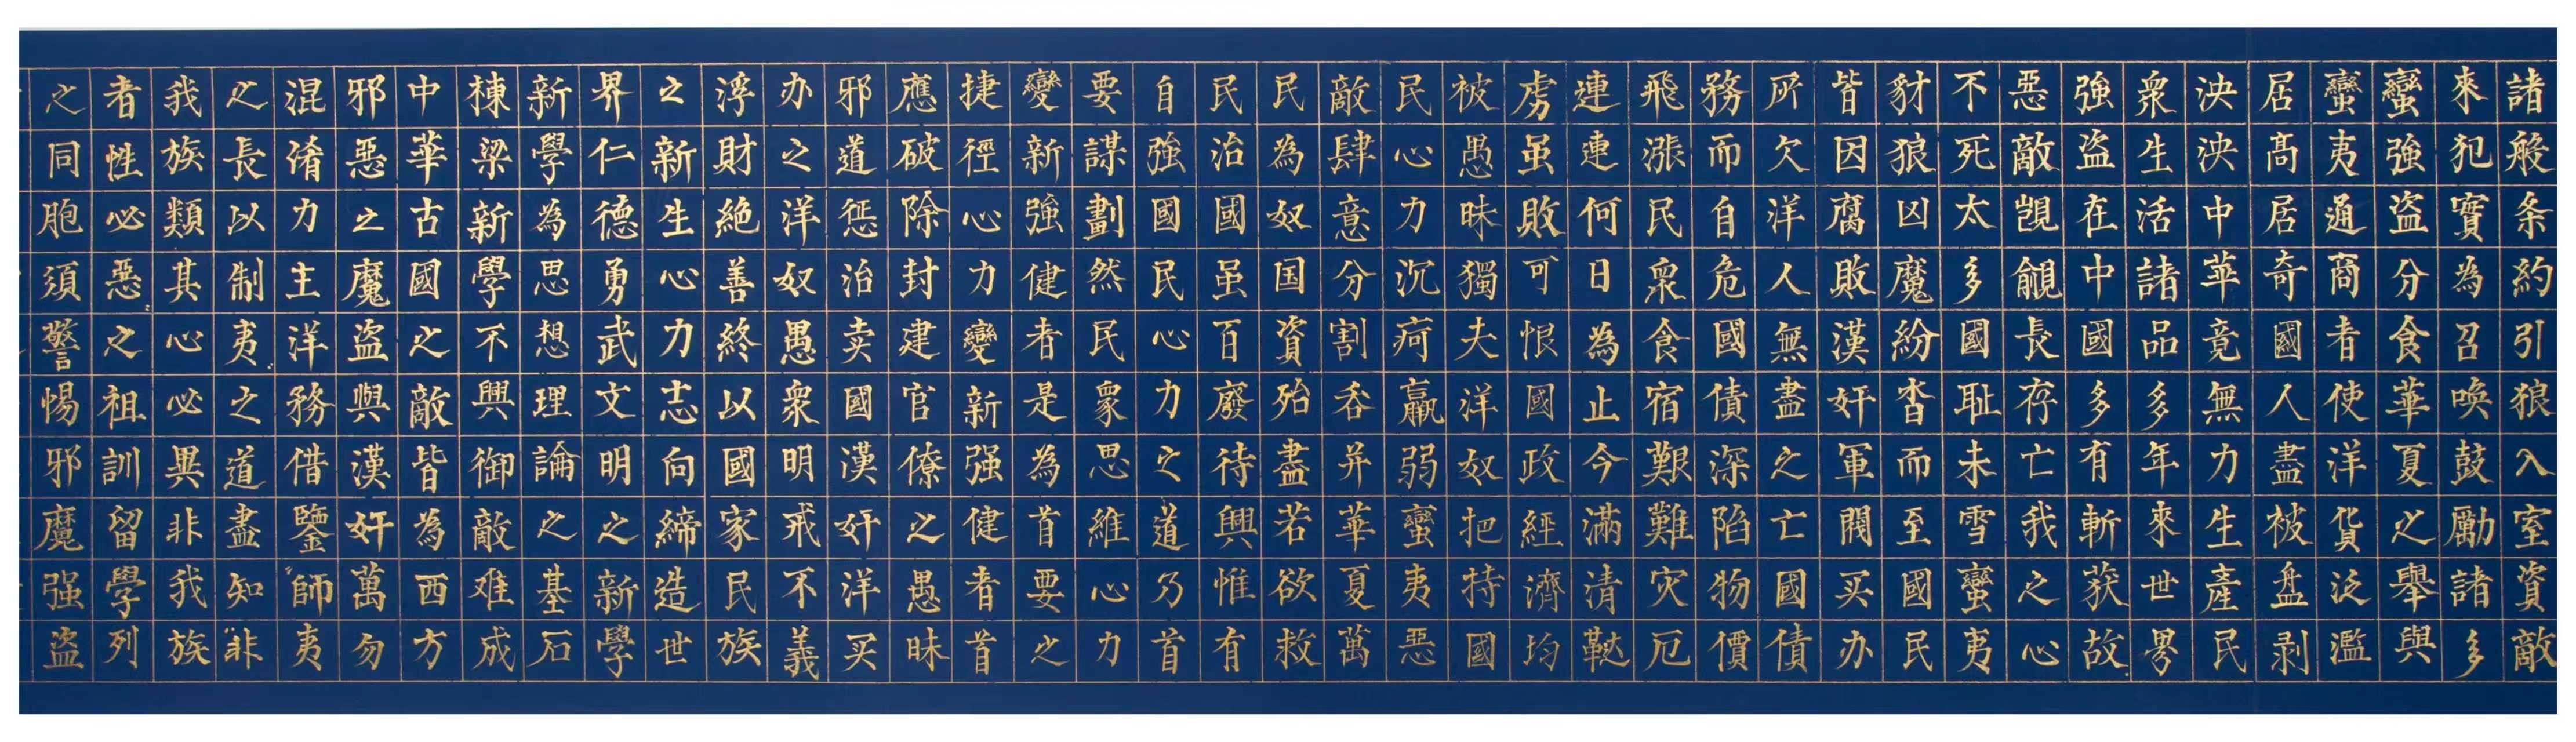 諸般条約引狼入室資敵
來犯寳為召唤鼓勵諸多
蠻強盗分食華夏之舉與
蠻夷通商者使洋貨泛濫
居髙居奇國人盡被盘剥
泱泱中華竟無力生產民
衆生活諸品多年來世界
強盗在中國多有斬获故
惡敵覬覦長存亡我之心
不死太多國耻未雪蠻夷
豺狼凶魔紛沓而至國民
皆因腐敗漢奸軍閥买办
所欠洋人無盡之亡國債
務而自危國債深陷物價
飛漲民衆食宿艱難灾厄
連連何日為止今滿清韃
虏虽敗可恨國政經濟均
被愚昧獨夫洋奴把持國
民心力沉疴羸弱蠻夷惡
敵肆意分割吞并華夏萬
民為奴国資殆盡若欲救
民治國虽百廢待興惟有
自強國民心力之道乃首
要謀劃然民衆思維心力
變新強健者是為首要之
捷徑心力變新强健者首
應破除封建官僚之愚昧
邪道惩治卖國漢奸洋买
办之洋奴愚衆明戒不義
浮財絶善終以國家民族
之新生心力志向締造世
界仁德勇武文明之新學
新學為思想理論之基石
棟梁新學不興御敵难成
中華古國之敵皆為西方
邪惡之魔盗與漢奸萬勿
混淆力主洋務借鑒師夷
之長以制夷之道盡知非
我族類其心必異非我族
者性必惡之祖訓留學列
之同胞須警惕邪魔强盗